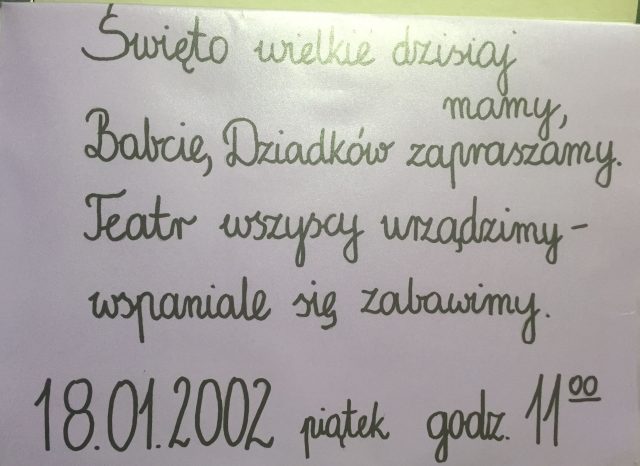 Święto wielkie dzisiaj
mamy,
Babcie, Dziadków zapraszamy.
Teatr wszyscy urządzimy -
wspaniale się zabawimy.
18.01.2002 piątek godz. 11⁰⁰